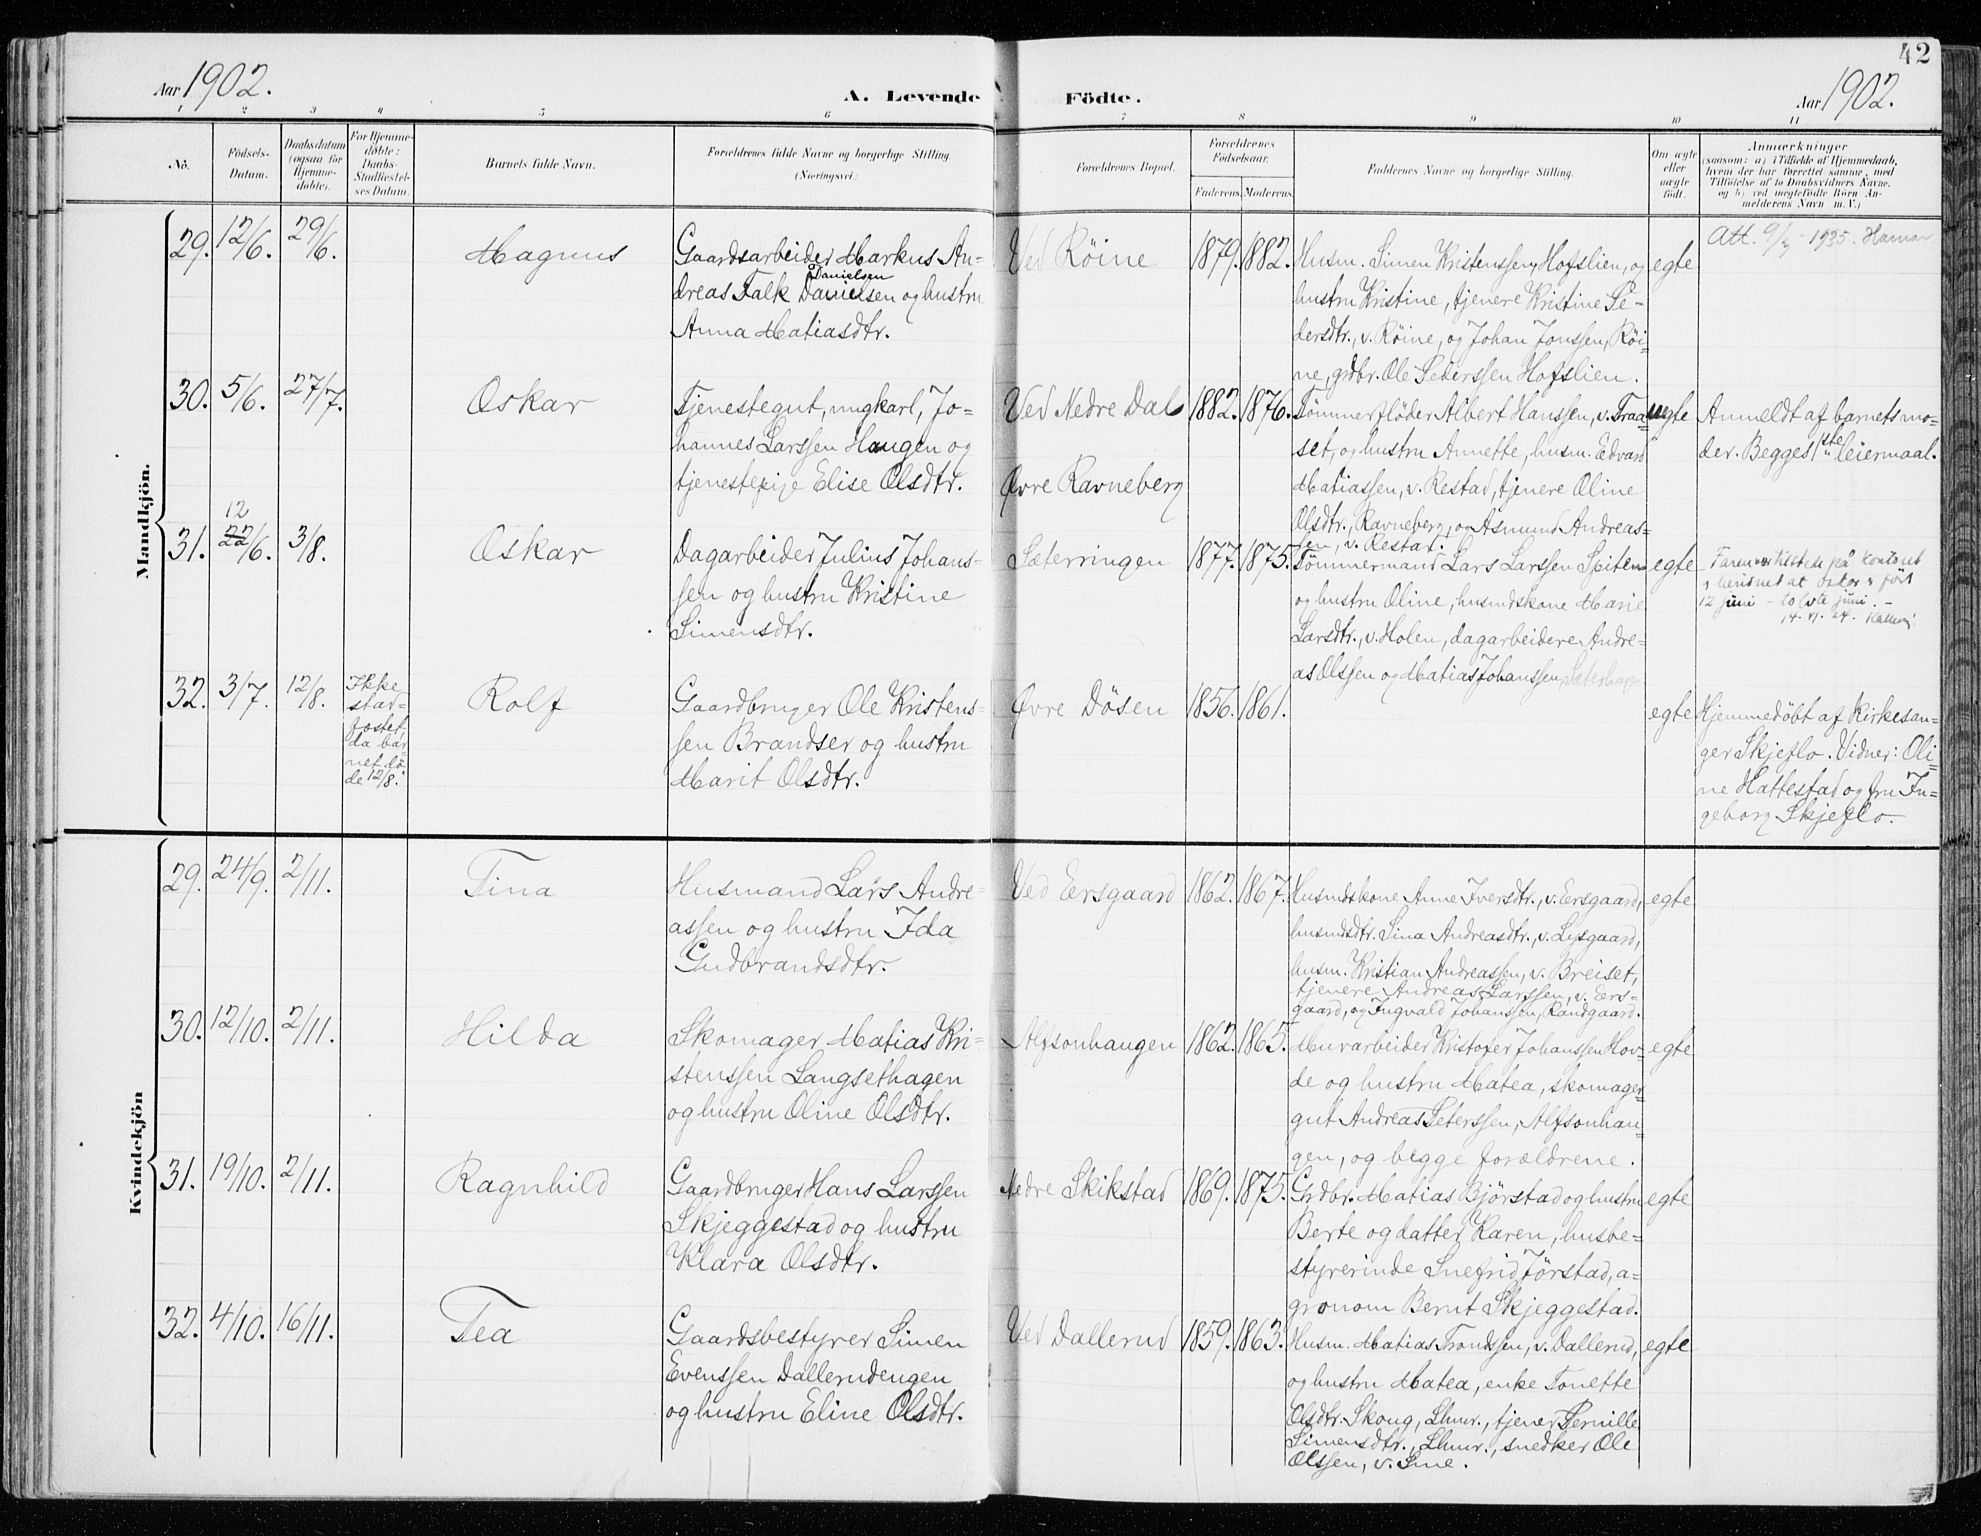 42
Aar 1902.
A. Levende Födte.
Aar 1902.
1 2 3 4 5 6 7 8 9 10 11
No.
Födsels-
Datum.
Daabsdatum
(ogsaa for
Hjemme-
döbte).
For Hjemme-
döbte:
Daabs-
Stadfæstel-
ses Datum.
Barnets fulde Navn.
Forældrenes fulde Navne og borgerlige Stilling
(Næringsvei)
Forældrenes Bopæl.
Forældrenes
Födselsaar.
Faderens. Moderens.
Faddernes Navne og borgerlige Stilling.
Om ægte
eller
uægte
födt.
Anmærkninger
(saasom: a) i Tilfælde af Hjemmedaab,
hvem der har forrettet samme, med
Tilföielse af to Daabsvidners Navne,
og b) ved uægtefödte Börn An-
melderens Navn m. V.)
Mandkjön.
29. 12/6. 29/6. Magnus
Gaardsarbeider Markus An-
Danielsen
dreas Falk Danielsen og hustru
Anna Matiasdtr.
Ved Röine 1879. 1882.
Husm. Simen Kristenssen, Hofslien, og
hustru Kristine, tjenere Kristine Pe-
dersdtr., v. Röine, og Johan Jonssen, Röi-
ne, grdbr. Ole Pederssen Hofslien.
egte
Att. 9/ 1935. Hamar
30. 5/6. 27/7. Oskar
Tjenestegut, ungkarl, Jo-
hannes Larssen Haugen og
tjenestepige Elise Olsdtr.
Ved Nedre Dal
Øvre Ravneberg
1882. 1876.
Tömmerflöder Albert Hanssen, v. Traa-
set, og hustru Annette, husm. Edvard
Matiassen, v. Restad, tjenere Oline
Olsdtr., Ravneberg, og Asmund Andreas-
sen, v. Restad.
uegte
Anmeldt af barnets mo-
der. Begges 1ste leiermaal.
12
31. 22/6. 3/8. Oskar
Dagarbeider Julius Johans-
sen og hustru Kristine
Simensdtr.
Sæterringen 1877. 1875.
Tömmermand Lars Larssen Spiten
og hustru Oline, husmdskone Marie
Larsdtr., v. Holen, dagarbeidere Andre-
as Olssen og Matias Johanssen, Sæterhagen
egte
på kontoret
at Oskar
12 juni - tolvte juni. -
32. 3/7. 12/8.
Ikke
stad-
fæstet,
da bar-
net dö-
de 12/8.
Rolf
Gaardbruger Ole Kristens-
sen Brandser og hustru
Marit Olsdtr.
Øvre Dösen 1856. 1861.
egte
Hjemmedöbt af Kirkesan-
ger Skjeflo. Vidner: Oli-
ne Hattestad og fru In-
geborg Skjeflo.
Kvindekjön
29. 24/9. 2/11. Tina
Husmand Lars Andre-
assen og hustru Ida
Gudbrandsdtr.
Ved Ersgaard 1862. 1867.
Husmdskone Anne Iversdtr., v. Ersgaard,
husmdsdtr. Sina Andreasdtr., v. Lysgaard,
husm. Kristian Andreassen, v. Breiset,
tjenere Andreas Larssen, v. Ers-
gaard, og Ingvald Johanssen, Randgaard.
egte
30. 12/10. 2/11. Hilda
Skomager Matias Kri-
stenssen Langsethagen
og hustru Oline Olsdtr.
Alfsonhaugen 1862. 1865.
Murarbeider Kristofer Johanssen Hov-
de og hustru Matea, skomager-
gut Andreas Peterssen, Alfsonhau-
gen, og begge forældrene.
egte
31. 19/10. 2/11. Ragnhild
Gaardbruger Hans Larssen
Skjeggestad og hustru
Klara Olsdtr.
Nedre Skikstad 1869. 1875.
Grdbr. Matias Björstad og hustru
Berte og datter Karen, husbe-
styrerinde Snefrid Jörstad, a-
gronom Bernt Skjeggestad.
egte
32. 4/10. 16/11. Tea
Gaardsbestyrer Simen
Evenssen Dallerudengen
og hustru Eline Olsdtr.
Ved Dallerud 1859. 1863.
Husm. Matias Trondssen, v. Dallerud,
og hustru Matea, enke Tonette
Olsdtr. Skoug, Lhmr., tjener Pernille
Simensdtr., Lhmr., snedker Ole
Olssen, v. Sme.
egte